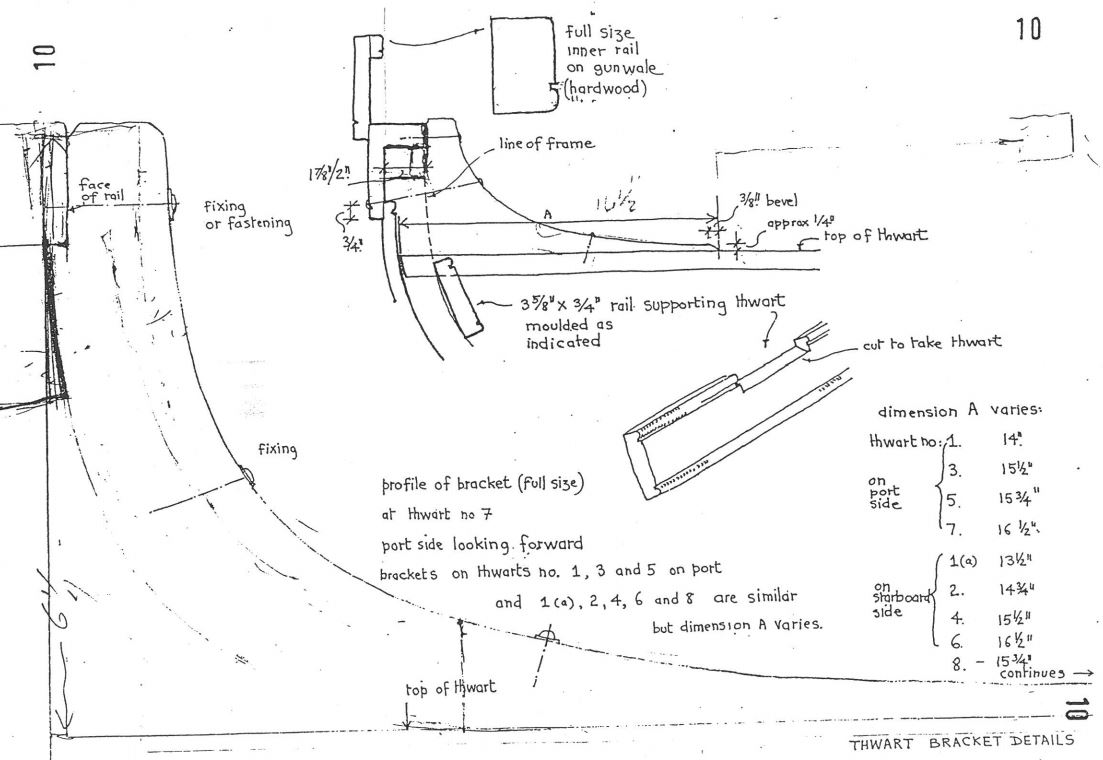 10
10
full size
inner rail
on gunwale
(hardwood)
line of frame
1⅞"/2"
face
of rail
fixing
or fastening
16½"
A
3/8" bevel
approx 1/4"
top of thwart
3/4"
3 5/8" x 3/4" rail supporting thwart
moulded as
indicated
cut to take thwart
dimension A varies:
thwart no: 1. 14"
3. 15½"
on
port
side
5. 15¾"
7. 16½"
1(a) 13½"
on
starboard
side
2. 14¾"
4. 15½"
6. 16½"
8. - 15¾"
continues →
fixing
profile of bracket (full size)
at thwart no 7
port side looking forward
brackets on thwarts no. 1, 3 and 5 on port
and 1(a), 2, 4, 6 and 8 are similar
but dimension A varies.
top of thwart
10
THWART BRACKET DETAILS